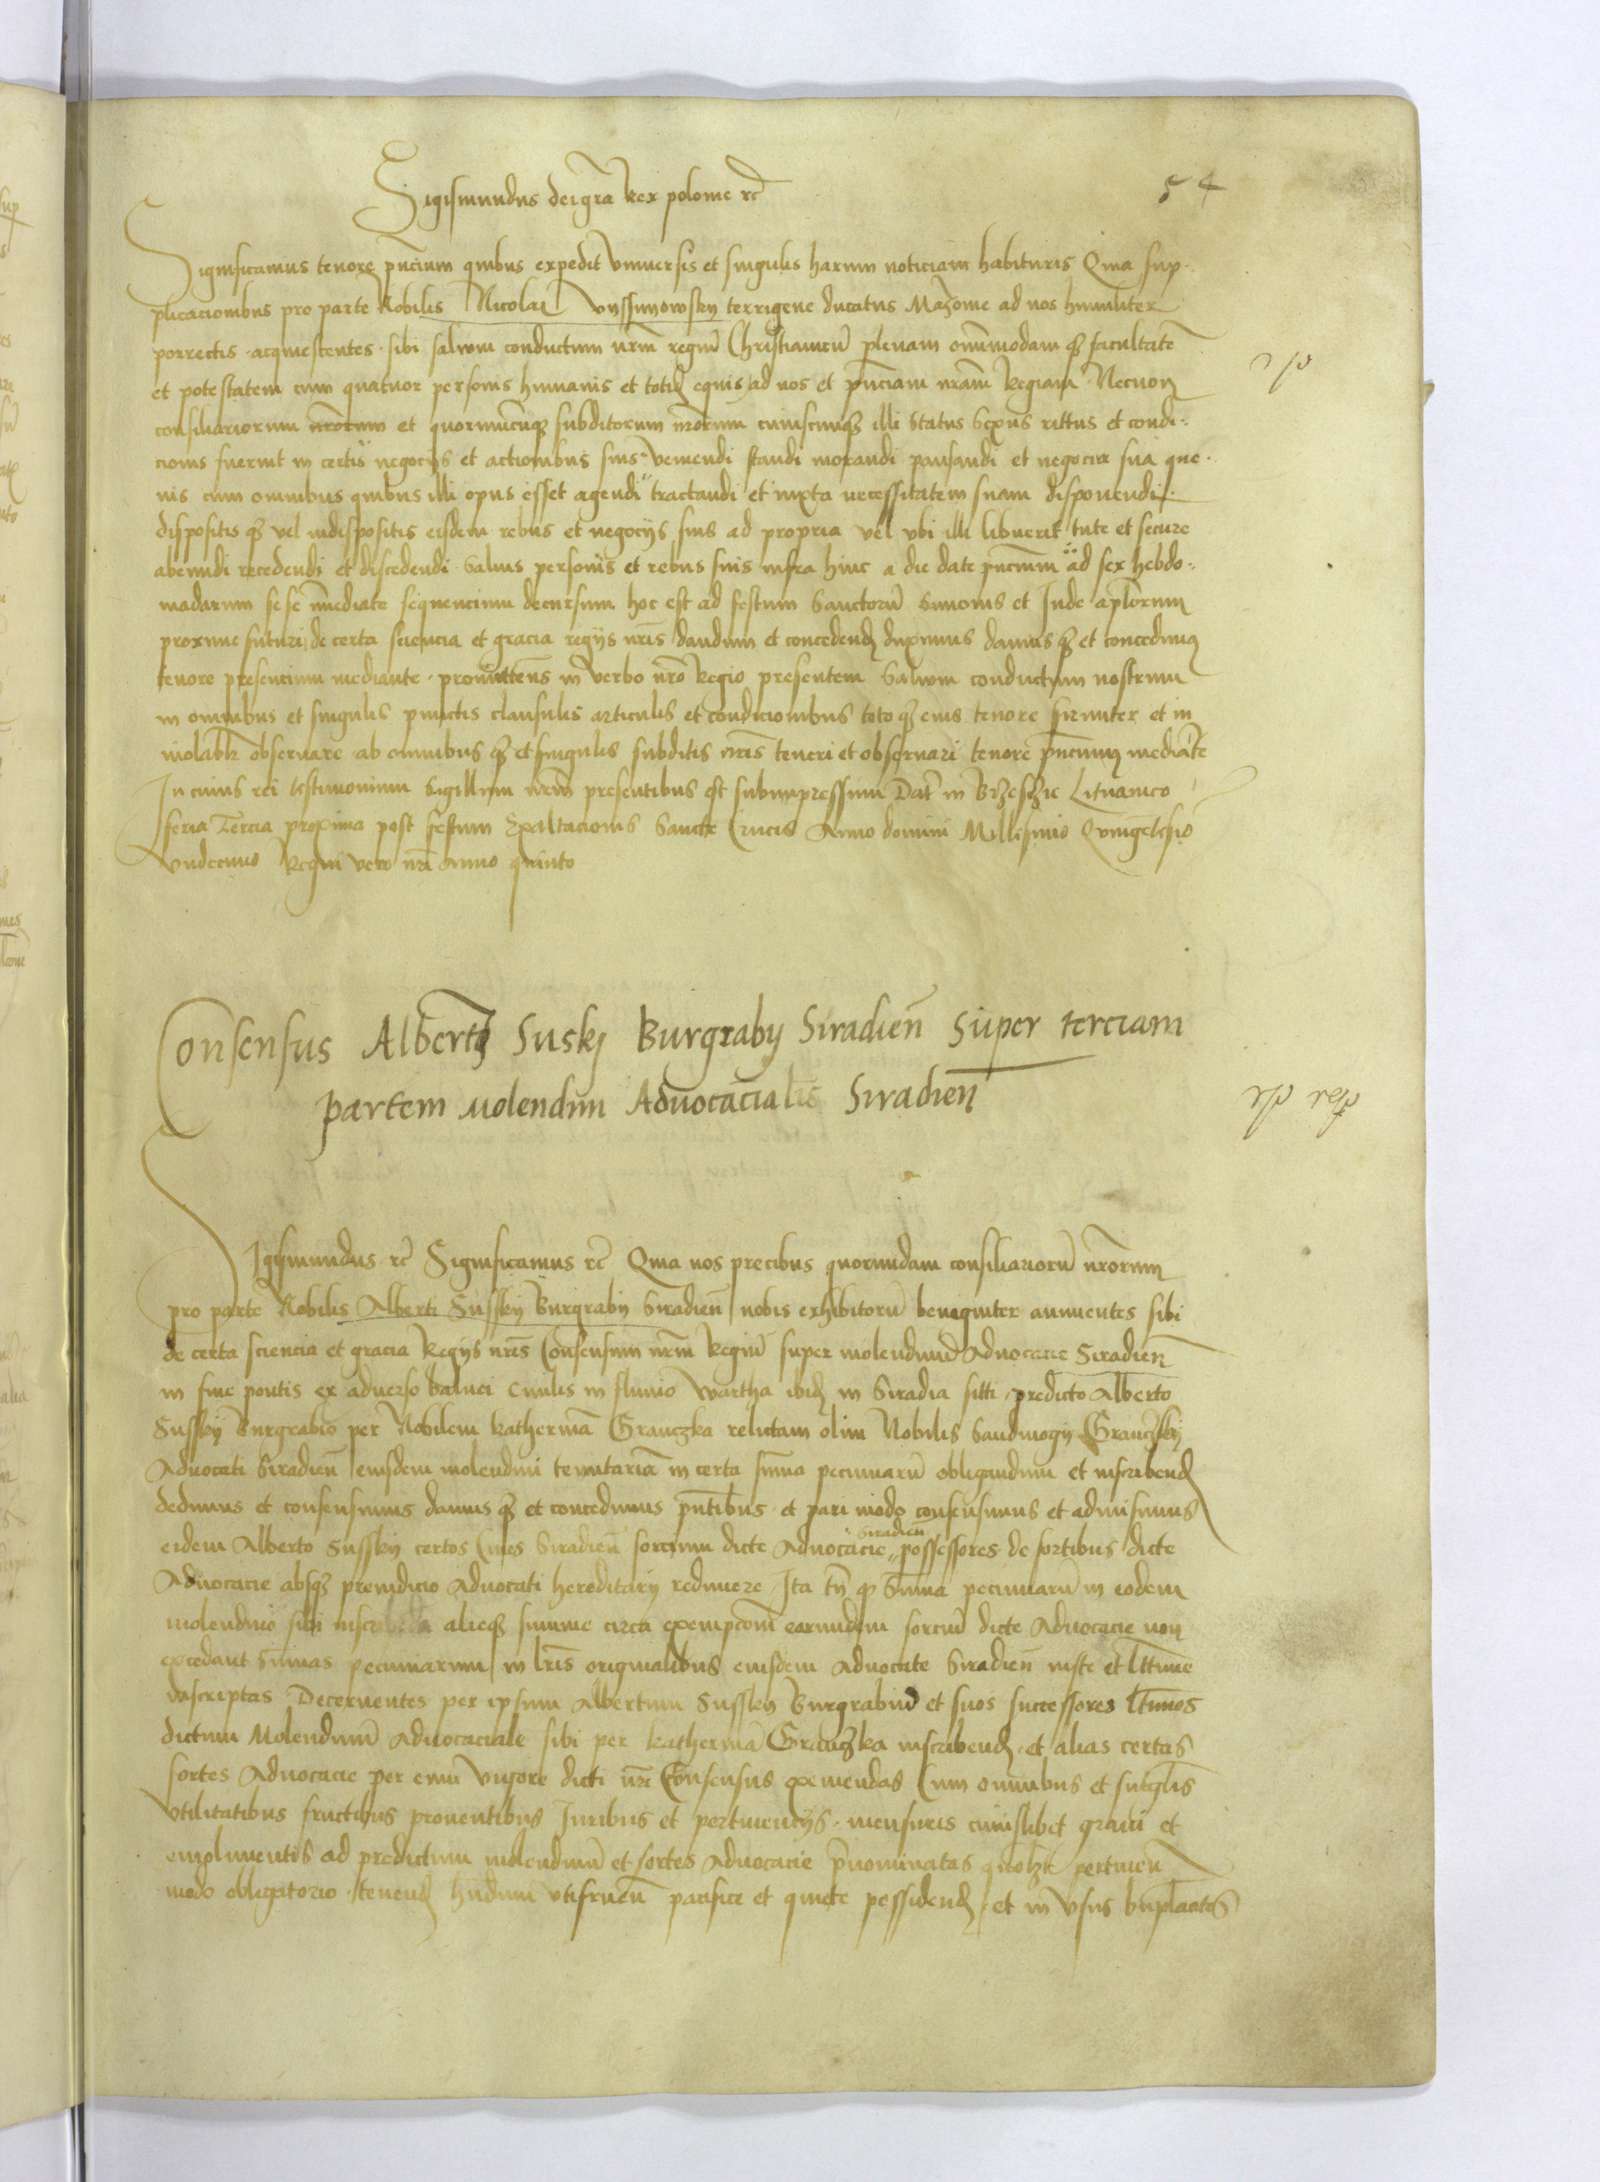 54
Sigismundus dei gr̃a Rex polonie rc̃
Significamus tenore pñcium quibus expedit vniuersis et singulis harum noticiam habituris Quia sup-
plicacionibus pro parte Nobilis Nicolai vyssinowsky terrigene ducatus Mazouie ad nos humiliter
porrectis acquiescentes sibi saluum conductum nrm̃ regiũ Christianũ plenam omnimodam qʒ facultatẽ
et potestatem cum quatuor personis humanis et totidẽ equis ad nos et pñciam nrãm Regiam Necnon
consiliariorum nrõrum et quorumcũqʒ subditorum nrõrum cuiuscunqʒ illi status sexus rittus et condi-
cionis fuerint in certis negocijs et actionibus suis veniendi standi morandi pausandi et negocia sua que-
uis cum omnibus quibus illi opus esset agendi tractandi et iuxta necessitatem suam disponendi
dispositis qʒ vel indispositis eisdem rebus et negocijs suis ad propria vel vbi illi libuerit tute et secure
abeundi recedendi et discedendi saluis personis et rebus suis infra hinc a die date pñcium ad sex hebdo-
madarum se se imediate sequencium decursum hoc est ad festum Sanctorũ Simonis et Jude apl̃orum
proxime futuri de certa sciencia et gracia regijs nrĩs dandum et concedendũ duximus damus qʒ et concedimus
tenore presencium mediante promittens̃ in verbo nrõ Regio presentem saluum conductum nostrum
in omnibus et singulis punctis clausulis articulis et condicionibus toto qʒ eius tenore firmiter et in
uiolabilr̃ obseruare ab omnibus qʒ et singulis subditis nrĩs teneri et obseruari tenore pñcium mediãte
In cuius rei testimonium Sigillum nrm̃ presentibus est subimpressum Dat̃ in Brzesczie Lituanico
feria Tercia proxima post festum Exaltacionis Sancte Crucis Anno domini Millesimo Quingētesĩo
vndecimo Regni vero nrĩ anno quinto
Consensus Alberto Susky Burgraby Siradieñ super terciam
partem molendini Aduocacialis Siradieñ
Sigismundus rc̃ Significamus rc̃ Quia nos precibus quorundam consiliariorũ nrõrum
pro parte Nobilis Alberti Sussky Burgrabij Siradieñ nobis exhibitorũ benigniter annuentes sibi
de certa sciencia et gracia Regijs nrĩs Consensum nrm̃ Regiũ super molendinũ Aduocacie Siradieñ
in fine pontis ex aduerso balnei Ciuilis in fluuio wartha ibidẽ in Siradia siti predicto Alberto
Sussky Burgrabio per Nobilem Katherinã Granczka relictam olim Nobilis Sandiuogij Granczsky
Aduocati Siradieñ eiusdem molendini tenutariã in certa sum̃a pecuniarũ obligandum et inscribendũ
dedimus et consensimus damus qʒ et concedimus pñtibus et pari modo consensimus et admisimus
eidem Alberto Sussky certos Ciues Siradieñ sorcium dicte Aduocacie Siradieñ possessores de sortibus dicte
Aduocacie absqʒ preiudicio Aduocati hereditarij redimere Ita tñ qʒ Sum̃a pecuniarũ in eodem
molendino sibi inscribenda alieqʒ summe circa exempcõem earumdem sorciũ dicte Aduocacie non
excedant sum̃as pecuniarum in lrĩs originalibus eiusdem Aduocacie Siradieñ iuste et ltt̃ime
inscriptas Decernentes per ipsum Albertum Sussky Burgrabiũ et suos successores ltt̃imos
dictum Molendinũ Aduocaciale sibi per Katherinã Granczka inscribendũ et alias certas
sortes Aduocacie per eum vigore dicti nrĩ Consensus eximendas Cum omnibus et singl̃is
vtilitatibus fructibus prouentibus Juribus et pertinencijs mensuris cuiuslibet grani et
emolimentis ad predictum molendinũ et sortes Aduocacie p̃nominatas quolʒt pertineñ
modo obligatorio tenendũ hñdum vtifrueñ pacifice et quiete possidendũ et in vsus bñplacitos